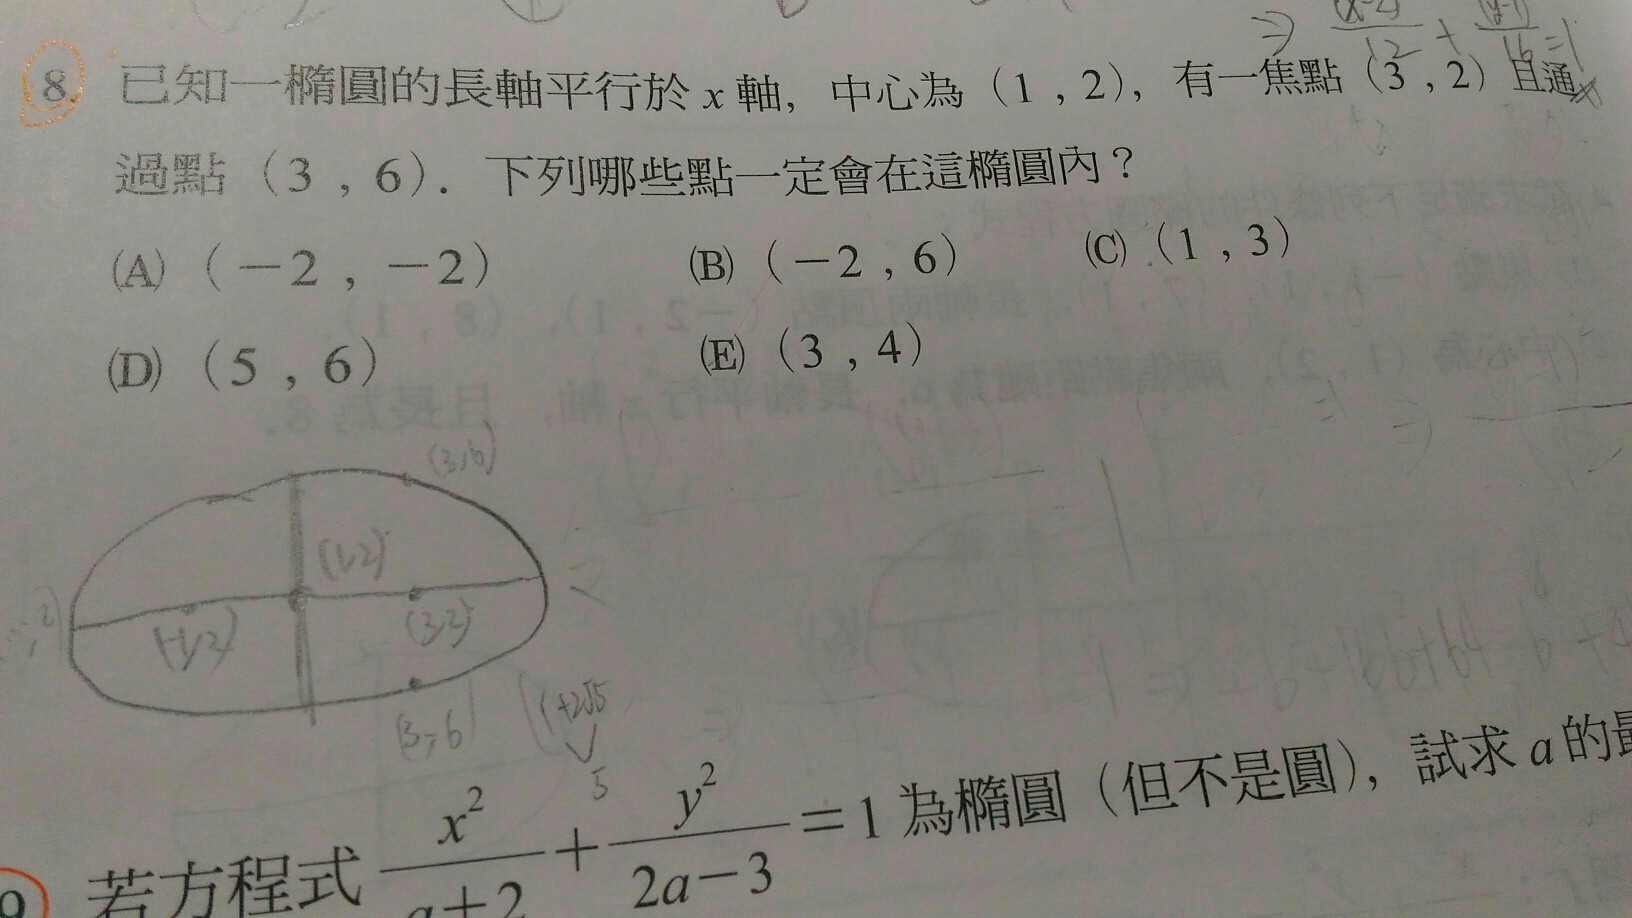 8. 已知一橢圓的長軸平行於 x 軸，中心為（1，2），有一焦點（3，2）且通
過點（3，6）．下列哪些點一定會在這橢圓內？
(A)（－2，－2） (B)（－2，6） (C)（1，3）
(D)（5，6） (E)（3，4）
(3,6)
(1,2)
(-1,2) (3,2)
5
9 若方程式 x²/(a+2) + y²/(2a－3) ＝1 為橢圓（但不是圓），試求 a 的最